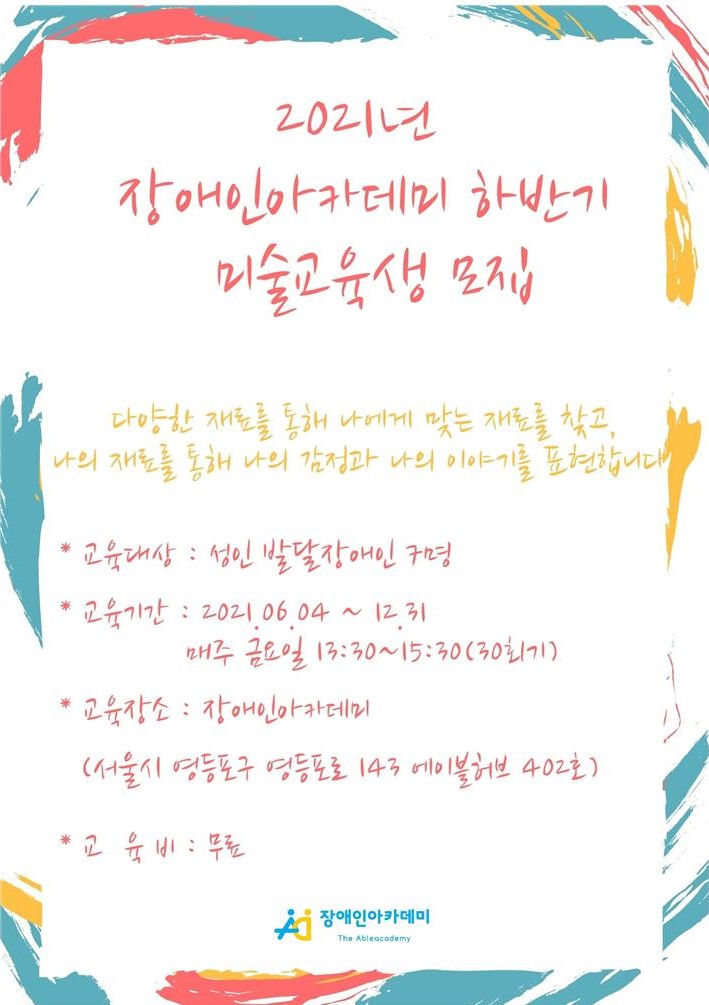 2021년
장애인아카데미 하반기
미술교육생 모집
다양한 재료를 통해 나에게 맞는 재료를 찾고,
나의 재료를 통해 나의 감정과 나의 이야기를 표현합니다
* 교육대상 : 성인 발달장애인 7명
* 교육기간 : 2021.06.04 ~ 12.31
매주 금요일 13:30~15:30(30회기)
* 교육장소 : 장애인아카데미
(서울시 영등포구 영등포로 143 에이블허브 402호)
* 교 육 비 : 무료
장애인아카데미
The Ableacademy